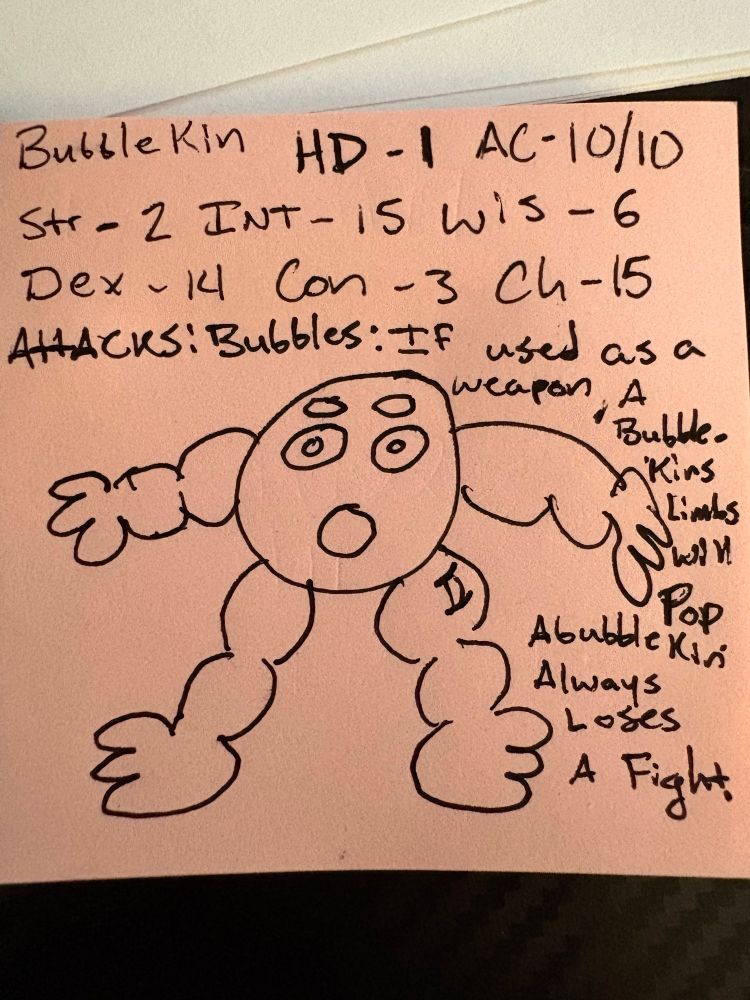 BubbleKin HD-1 AC-10/10
Str-2 INT-15 WIS-6
Dex-14 Con-3 Ch-15
AttACKS: Bubbles: If used as a
weapon, A
Bubble-
Kins
Limbs
will
Pop
A bubble Kin
Always
Loses
A Fight.